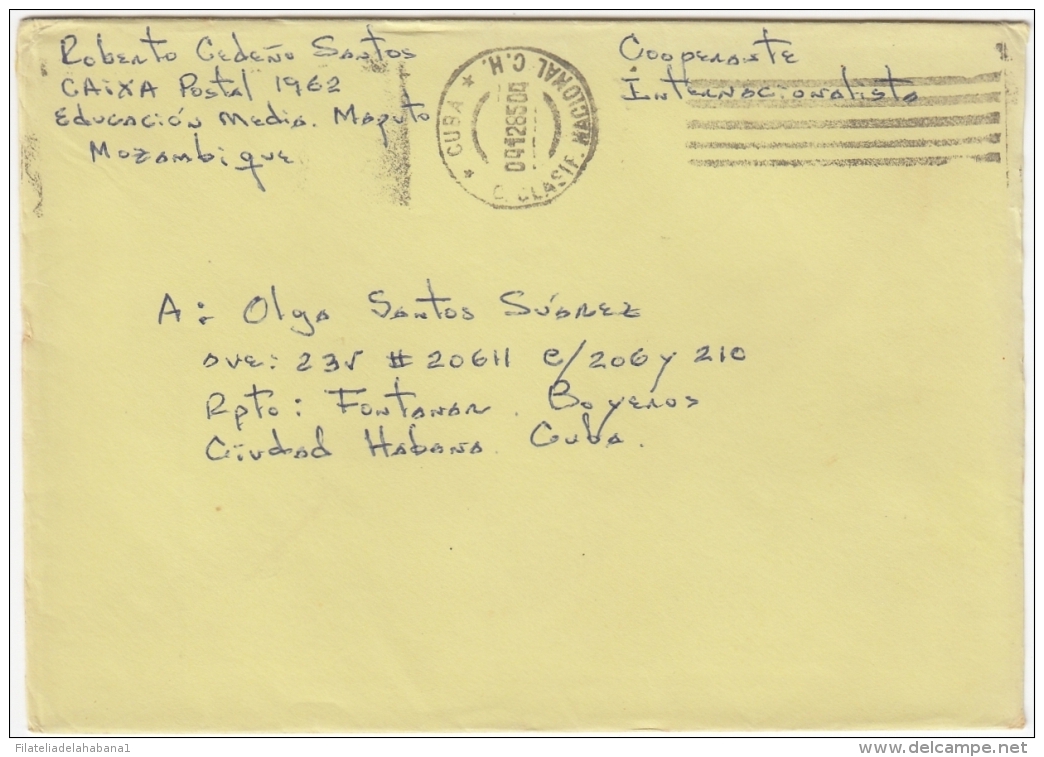 Roberto Cedeño Santos
CAiXA Postal 1962
Educación Media. Maputo
Mozambique
Cooperante
Internacionalista
* CUBA *
C. CLASIF. NACIONAL C.H.
A: Olga Santos Súarez
Ave: 235 # 20611 e/206 y 210
Rpto: Fontanar. Boyeros
Ciudad Habana. Cuba.
Filateliadelahabana1
www.delcampe.net